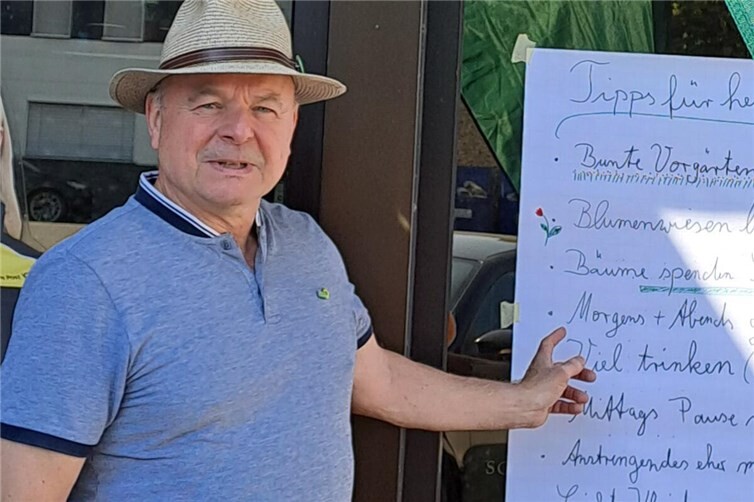 Tipps für he
• Bunte Vorgärten
Blumenwiesen
• Bäume spenden
• Morgens + Abends
Viel trinken (
Mittags Pause
• Anstrengendes eher m